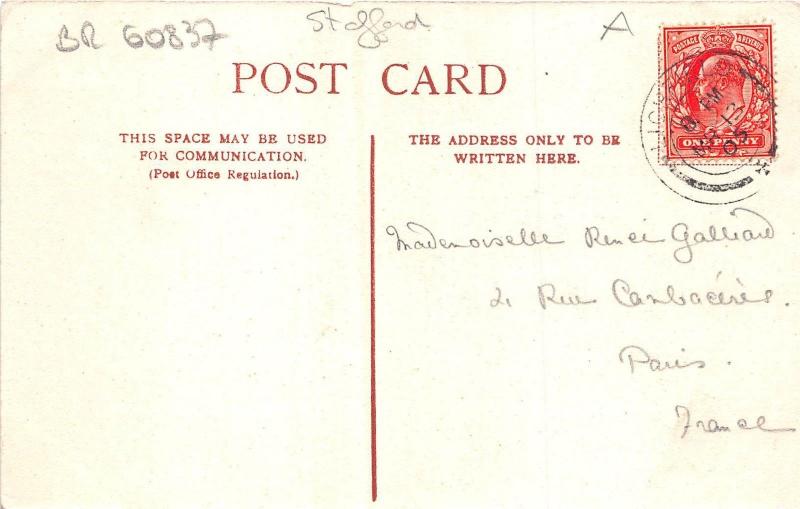 BR 60837
Stafford
A
POST CARD
THIS SPACE MAY BE USED
FOR COMMUNICATION.
(Post Office Regulation.)
THE ADDRESS ONLY TO BE
WRITTEN HERE.
POSTAGE & REVENUE
ONE PENNY
8 PM
12
05
Mademoiselle Renée Galliard
Rue Cambacérès.
Paris.
France